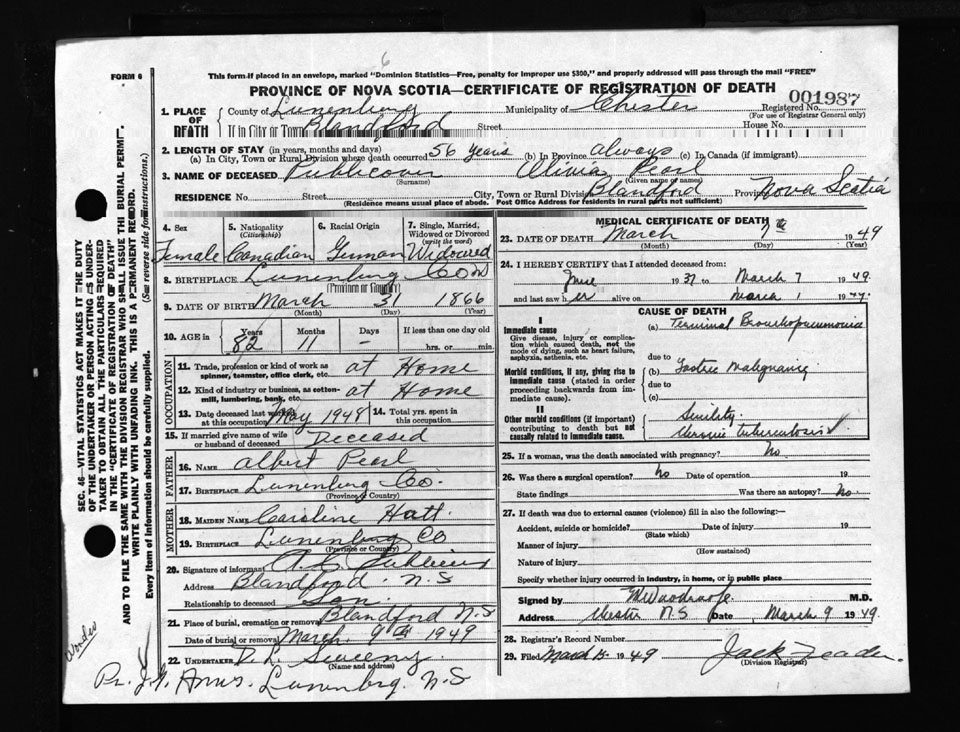 6
FORM 6
This form if placed in an envelope, marked "Dominion Statistics—Free, penalty for improper use $300," and properly addressed will pass through the mail "FREE"
PROVINCE OF NOVA SCOTIA—CERTIFICATE OF REGISTRATION OF DEATH
1. PLACE OF DEATH County of Lunenburg Municipality of Chester Registered No. 001987
(For use of Registrar General only)
If in City or Town Blandford Street House No.
2. LENGTH OF STAY (in years, months and days)
(a) In City, Town or Rural Division where death occurred 56 Years (b) In Province Always (c) In Canada (if immigrant)
3. NAME OF DECEASED Publicover Olivia
(Surname) (Given name or names)
RESIDENCE No. Street City, Town or Rural Division Blandford Province Nova Scotia
(Residence means usual place of abode. Post Office Address for residents in rural parts not sufficient)
4. Sex 5. Nationality (Citizenship) 6. Racial Origin 7. Single, Married, Widowed or Divorced (write the word)
Female Canadian German Widowed
8. BIRTHPLACE Lunenburg Co NS
(Province or Country)
9. DATE OF BIRTH March 31 1866
(Month) (Day) (Year)
10. AGE in Years Months Days If less than one day old
82 11 – hrs. or min.
OCCUPATION
11. Trade, profession or kind of work as spinner, teamster, office clerk, etc. at Home
12. Kind of industry or business, as cotton-mill, lumbering, bank, etc. at Home
13. Date deceased last worked at this occupation May 1948 14. Total yrs. spent in this occupation
15. If married give name of wife or husband of deceased Deceased
FATHER
16. NAME Albert Pearl
17. BIRTHPLACE Lunenburg Co.
(Province or Country)
MOTHER
18. MAIDEN NAME Caroline Hatt
19. BIRTHPLACE Lunenburg Co
(Province or Country)
20. Signature of informant
Address Blandford N.S
Relationship to deceased Son
21. Place of burial, cremation or removal Blandford N.S
Date of burial or removal March 9th 1949
22. UNDERTAKER D. L. Sweeny
(Name and address)
Lunenbrg. N.S
MEDICAL CERTIFICATE OF DEATH
23. DATE OF DEATH March 7th 1949
(Month) (Day) (Year)
24. I HEREBY CERTIFY that I attended deceased from:
June 1937 to March 7 1949
and last saw her alive on March 1 1949
CAUSE OF DEATH
I
Immediate cause
Give disease, injury or complication which caused death, not the mode of dying, such as heart failure, asphyxia, asthenia, etc.
(a) Terminal Bronchopneumonia
due to
Morbid conditions, if any, giving rise to immediate cause (stated in order proceeding backwards from immediate cause).
(b) Gastric Malignancy
due to
(c)
II
Other morbid conditions (if important) contributing to death but not causally related to immediate cause.
Senility.
Chronic tuberculosis
25. If a woman, was the death associated with pregnancy? No.
26. Was there a surgical operation? No Date of operation 19
State findings Was there an autopsy? No.
27. If death was due to external causes (violence) fill in also the following:—
Accident, suicide or homicide? Date of injury 19
(State which)
Manner of injury
(How sustained)
Nature of injury
Specify whether injury occurred in industry, in home, or in public place
Signed by M.D.
Address Chester N.S Date March 9 1949.
28. Registrar's Record Number
29. Filed March 15 1949 Jack Zeader.
(Division Registrar)
SEC. 46—VITAL STATISTICS ACT MAKES IT THE DUTY OF THE UNDERTAKER OR PERSON ACTING AS UNDERTAKER TO OBTAIN ALL THE PARTICULARS REQUIRED IN THE "CERTIFICATE OF REGISTRATION OF DEATH" AND TO FILE THE SAME WITH THE DIVISION REGISTRAR WHO SHALL ISSUE THE BURIAL PERMIT.
WRITE PLAINLY WITH UNFADING INK. THIS IS A PERMANENT RECORD.
Every item of information should be carefully supplied. (See reverse side for instructions.)